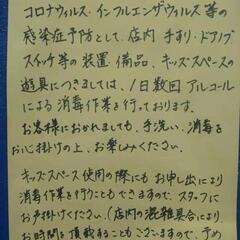 コロナウィルス・インフルエンザウィルス等の
感染症予防として、店内 手すり・ドアノブ
スイッチ等の装置、備品、キッズ・スペースの
遊具につきましては、1日数回 アルコール
による消毒作業を行っております。
お客様におかれましても、手洗い、消毒を
お心掛けの上、お楽しみください。
キッズ・スペース使用の際にもお申し出により
消毒作業を行うこともできますので、スタッフに
お声掛けください。(店内の混雑具合により
お時間を頂戴することもございますので、予め